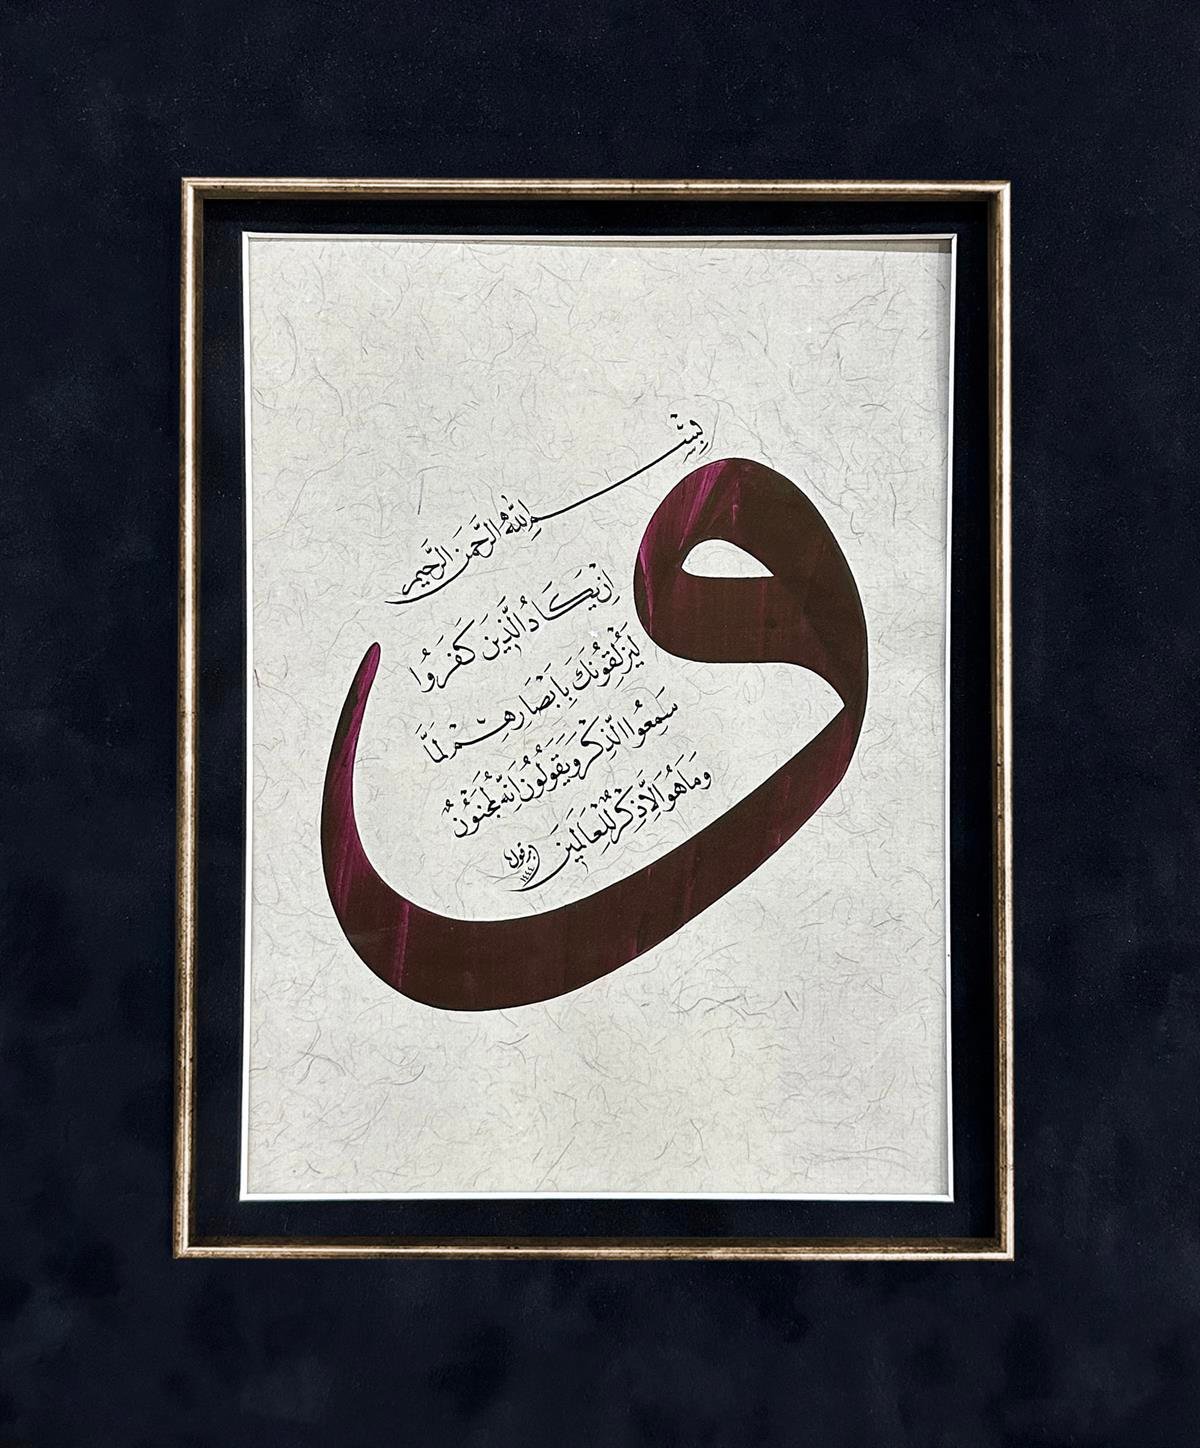 بِسْمِ اللّٰهِ الرَّحْمٰنِ الرَّحِيمِ
و
اِنْ يَكَادُ الَّذِينَ كَفَرُوا
لَيُزْلِقُونَكَ بِاَبْصَارِهِمْ لَمَّا
سَمِعُوا الذِّكْرَ وَيَقُولُونَ اِنَّهُ لَمَجْنُونٌ
وَمَا هُوَ اِلَّا ذِكْرٌ لِلْعَالَمِينَ
١٤٤٤